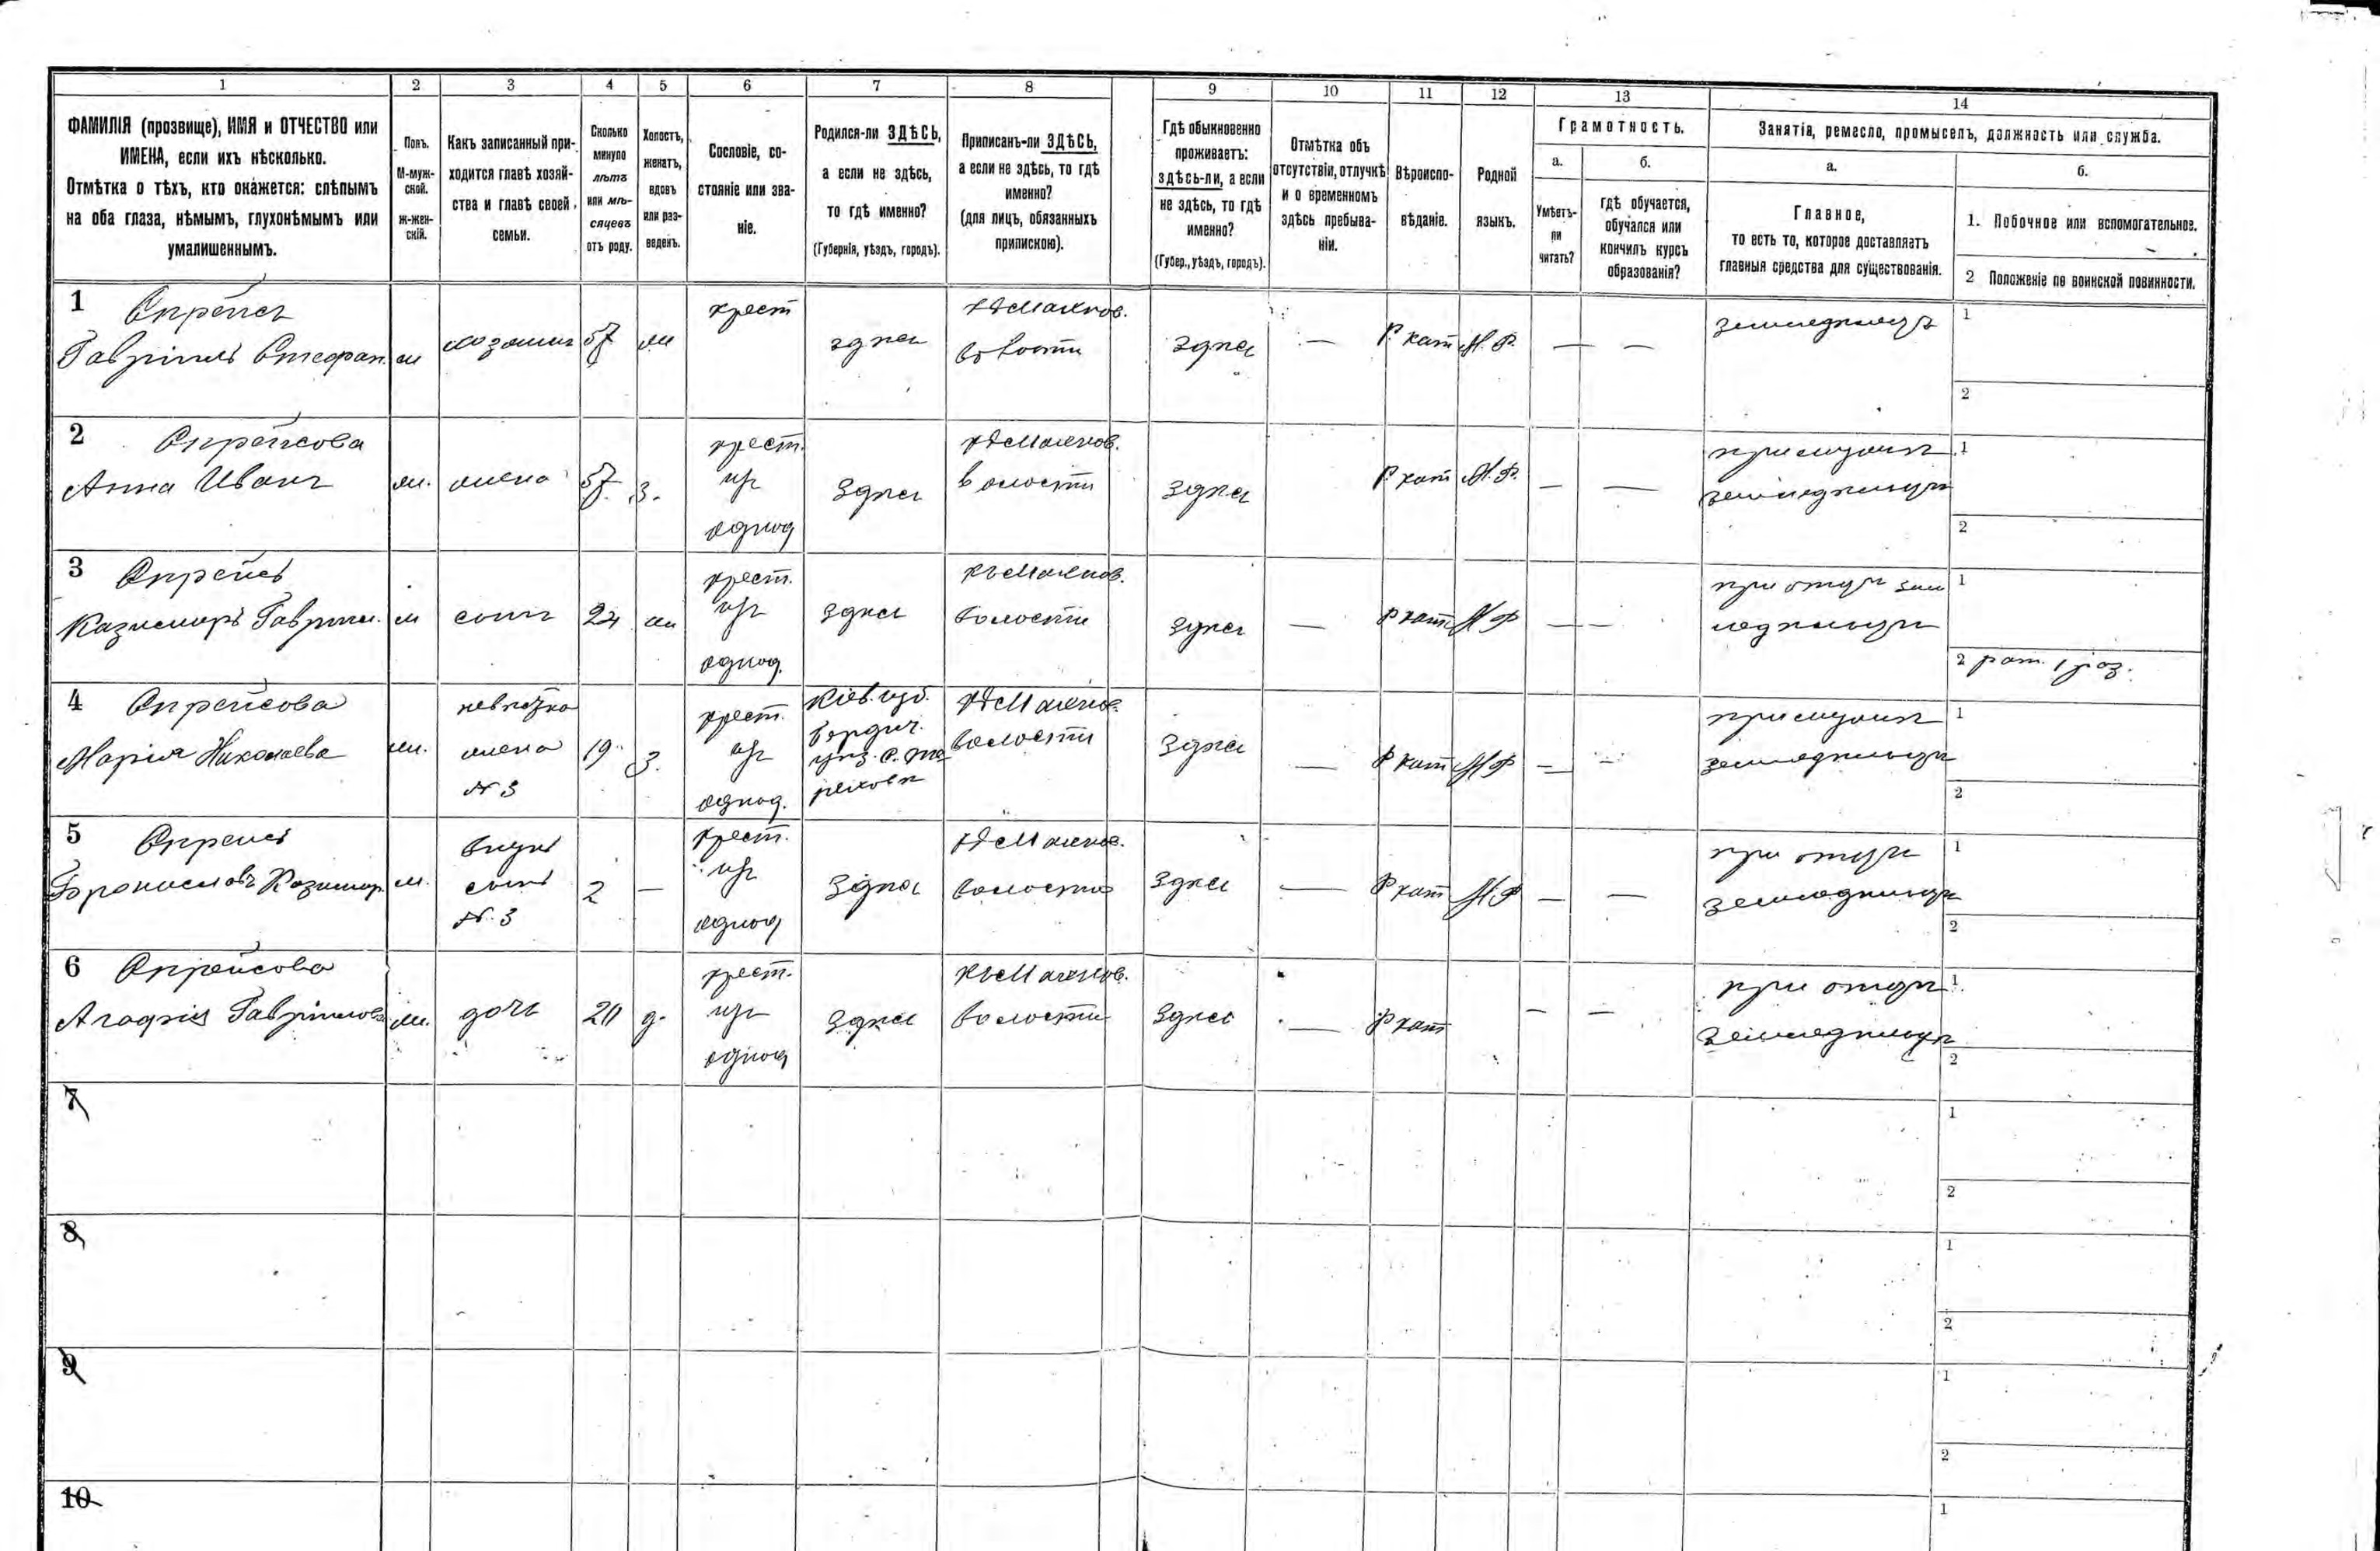 1
2
3
4
5
6
7
8
9
10
11
12
13
14
ФАМИЛІЯ (прозвище), ИМЯ и ОТЧЕСТВО или
ИМЕНА, если ихъ нѣсколько.
Отмѣтка о тѣхъ, кто окажется: слѣпымъ
на оба глаза, нѣмымъ, глухонѣмымъ или
умалишеннымъ.
Полъ.
М-муж-
ской.
ж-жен-
скій.
Какъ записанный при-
ходится главѣ хозяй-
ства и главѣ своей
семьи.
Сколько
минуло
лѣтъ
или мѣ-
сяцевъ
отъ роду.
Холостъ,
женатъ,
вдовъ
или раз-
веденъ.
Сословіе, со-
стояніе или зва-
ніе.
Родился-ли ЗДѢСЬ,
а если не здѣсь,
то гдѣ именно?
(Губернія, уѣздъ, городъ).
Приписанъ-ли ЗДѢСЬ,
а если не здѣсь, то гдѣ
именно?
(для лицъ, обязанныхъ
припискою).
Гдѣ обыкновенно
проживаетъ:
здѣсь-ли, а если
не здѣсь, то гдѣ
именно?
(Губер., уѣздъ, городъ).
Отмѣтка объ
отсутствіи, отлучкѣ
и о временномъ
здѣсь пребыва-
ніи.
Вѣроиспо-
вѣданіе.
Родной
языкъ.
Грамотность.
а.
Умѣетъ-
ли
читать?
б.
гдѣ обучается,
обучался или
кончилъ курсъ
образованія?
Занятія, ремесло, промыселъ, должность или служба.
а.
Главное,
то есть то, которое доставляетъ
главныя средства для существованія.
б.
1. Побочное или вспомогательное.
2 Положеніе по воинской повинности.
1
Гавріилъ Стефан.
м
хозяинъ
57
жн
крест
здѣсь
волости
здѣсь
—
Р. кат
— —
земледѣлецъ
1
2
2
Анна Иван
ж.
жена
57
з.
крест.
изъ
однод
здѣсь
волости
здѣсь
Р. кат
— —
при мужѣ
земледѣльцѣ
1
2
3
Казимиръ Гавріил.
м
сынъ
24
жн
крест.
изъ
однод.
здѣсь
волости
здѣсь
—
Р кат
— —
при отцѣ зем
ледѣльцѣ
1
2 рат. 1 раз.
4
Марія Николаева
ж.
невѣстка
жена
№ 3
19
з.
крест.
изъ
однод.
Кіев. губ.
Бердич.
волости
здѣсь
—
Р кат
— —
при мужѣ
земледѣльцѣ
1
2
5
Брониславъ Казимир.
м.
внукъ
сынъ
№. 3
2
—
крест.
изъ
однод
здѣсь
волости
здѣсь
—
Р кат
— —
при отцѣ
земледѣльцѣ
1
2
6
Агафія Гавріилова
ж.
дочь
20
д.
крест.
изъ
однод
здѣсь
волости
здѣсь
—
Р кат
— —
при отцѣ
земледѣльцѣ
1
2
7
1
2
8
1
2
9
1
2
10
1